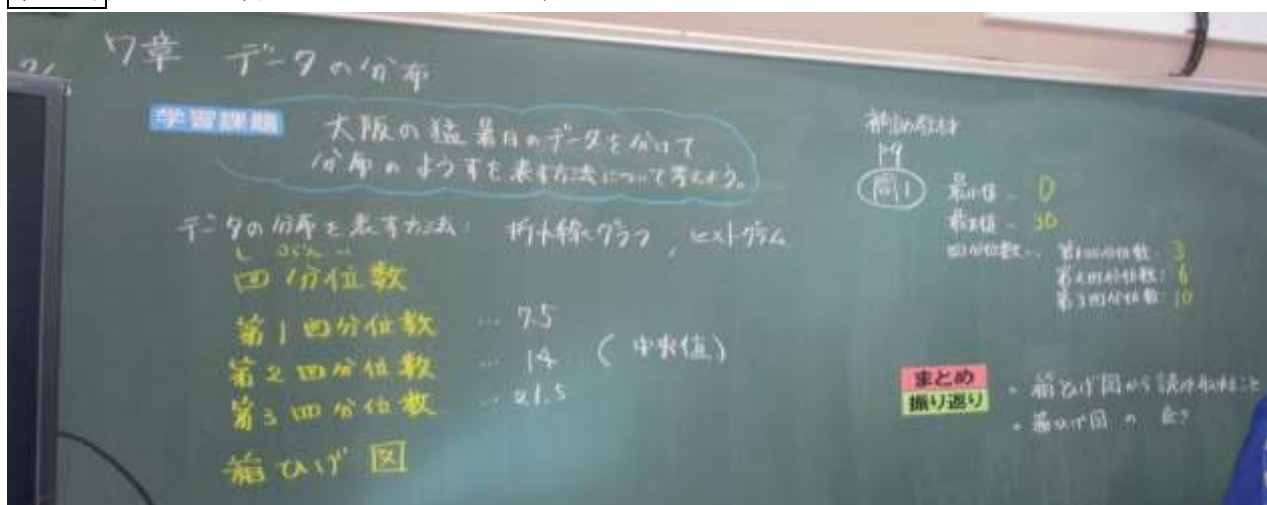 7章 データの分布
学習課題
大阪の猛暑日のデータを分けて
分布のようすを表す方法について考えよう。
データの分布を表す方法: 折れ線グラフ, ヒストグラム
し ぶん い
四分位数
第1四分位数 … 7.5
第2四分位数 … 14 (中央値)
第3四分位数 … 21.5
箱ひげ図
P9
問1
最小値 - 0
最大値 -
四分位数 - 第1四分位数: 3
第2四分位数: 6
第3四分位数: 10
まとめ
振り返り
・箱ひげ図から読み取れること
・箱ひげ図の良さ